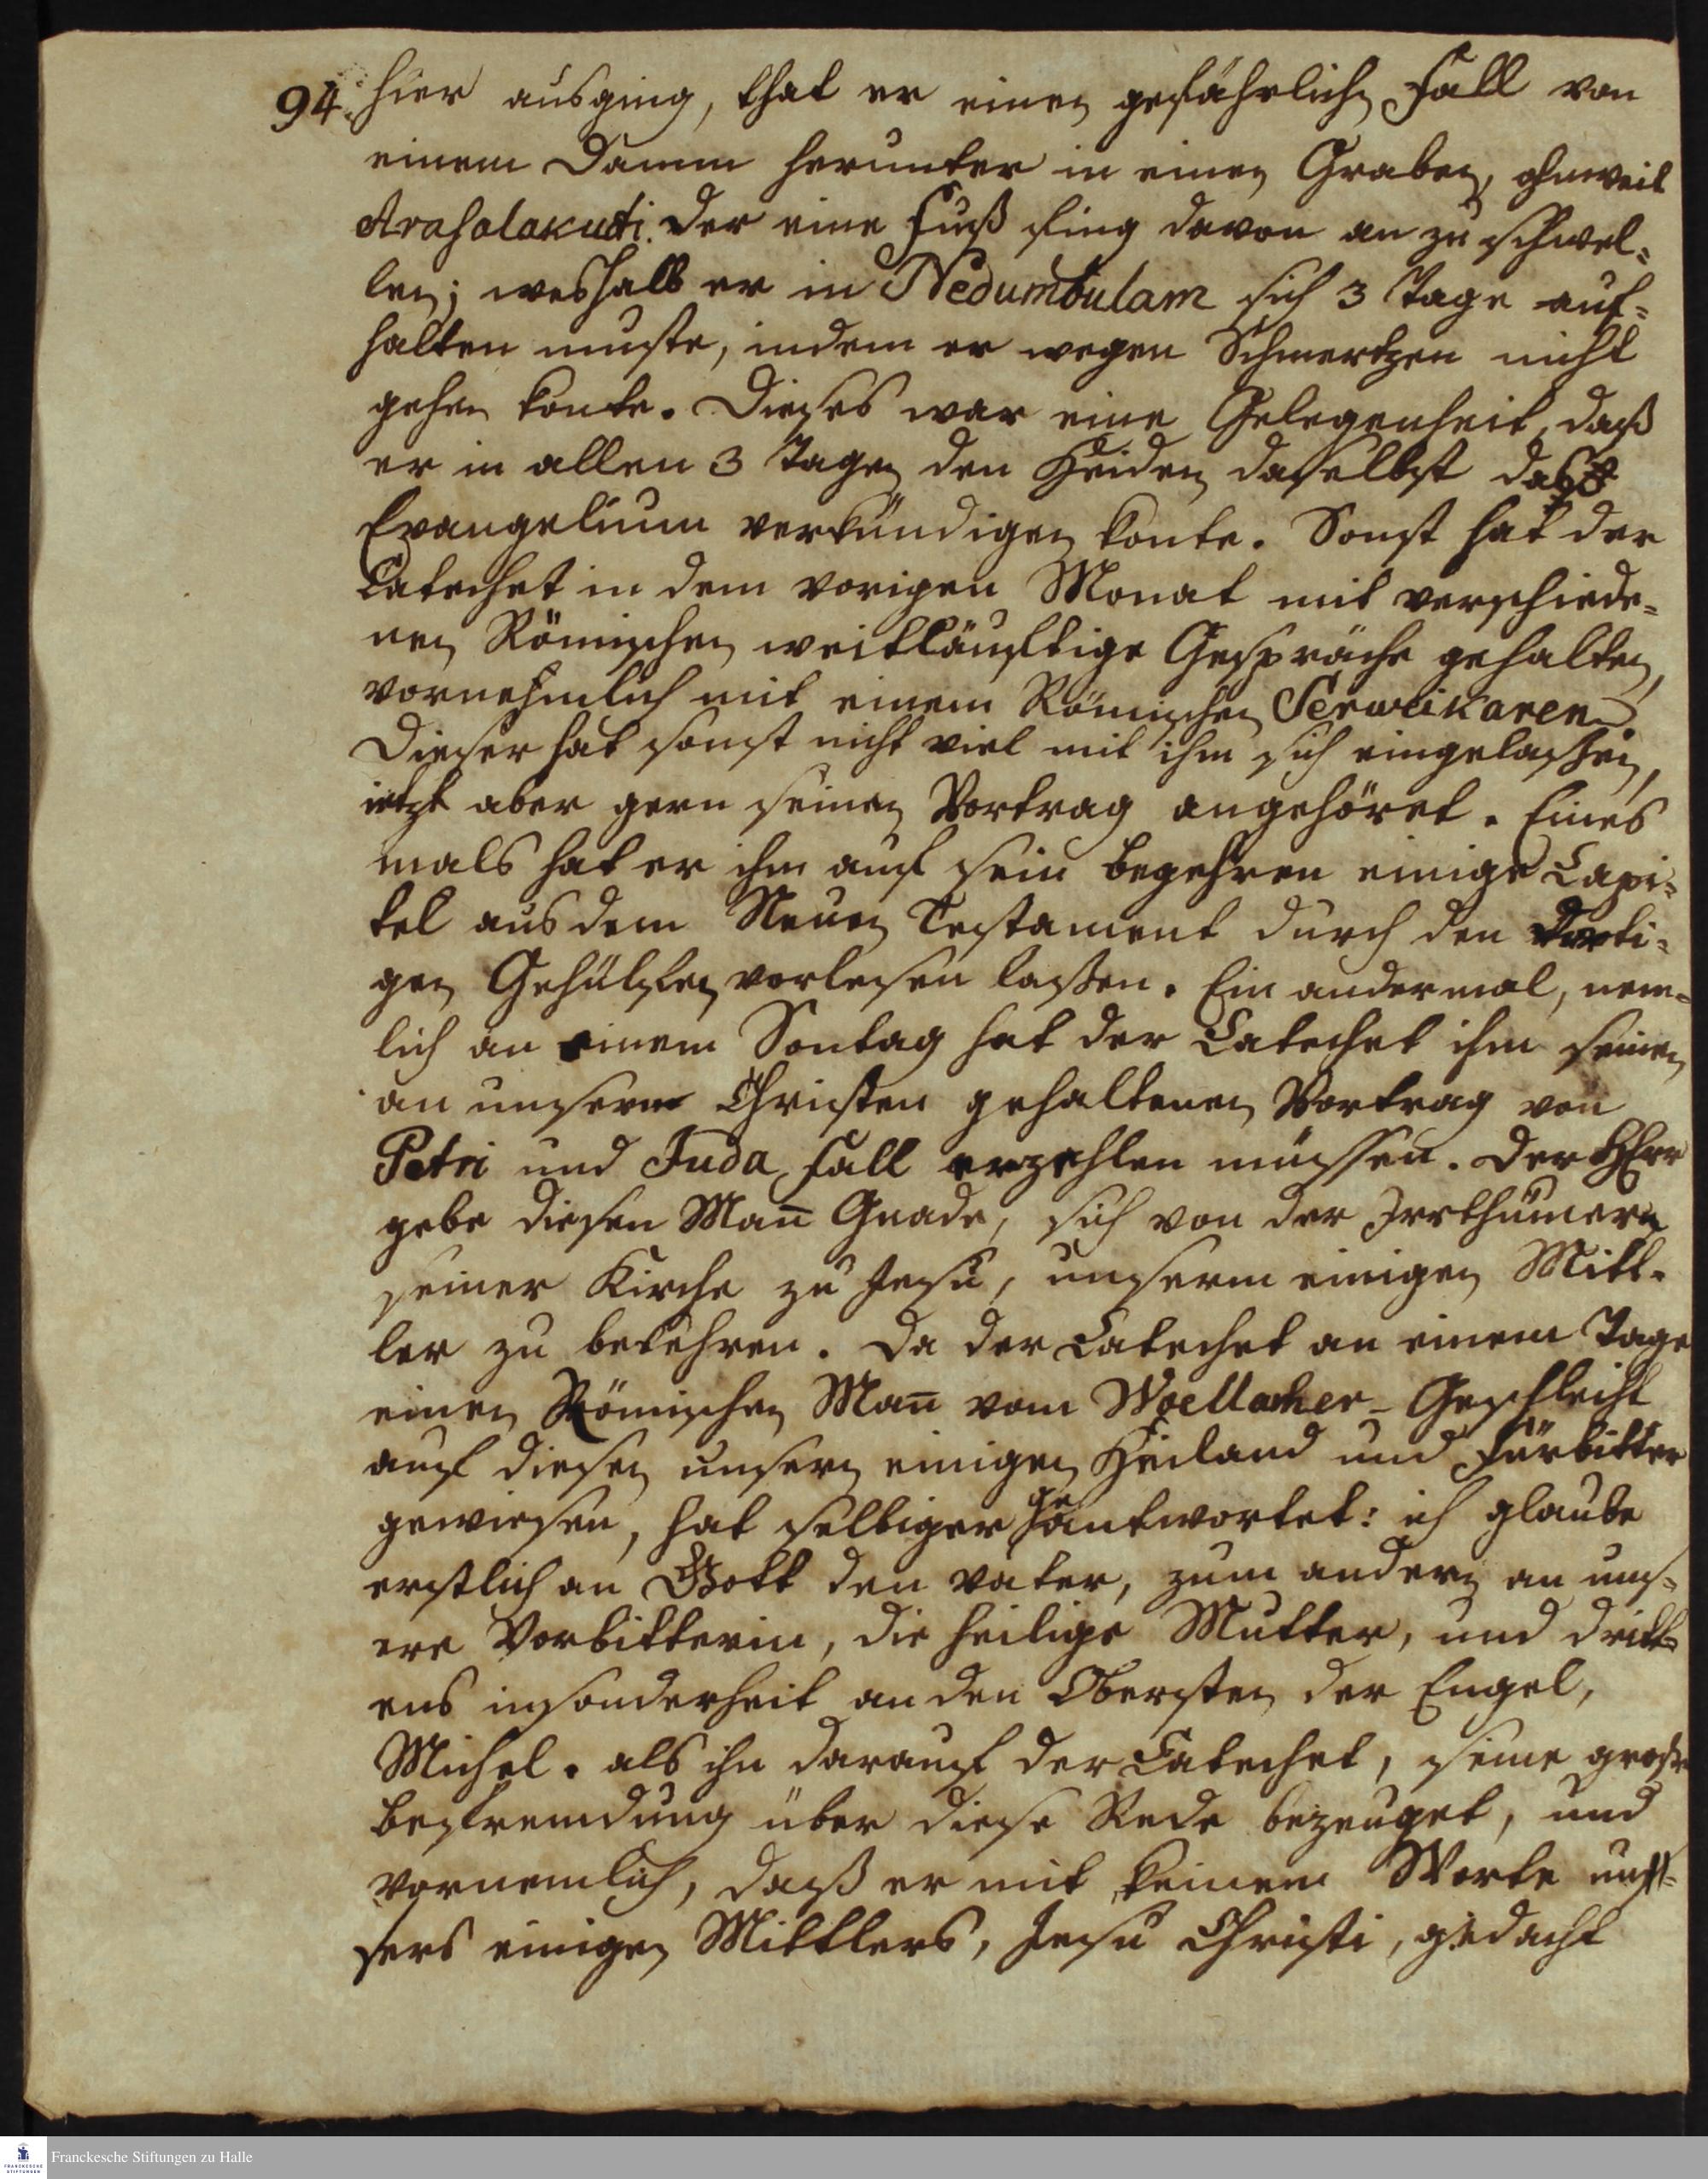 94. hier ausging, that er einen gefährlichen Fall von
einem Damm herunter in einen Graben, ohnweit
Arasalakudi. Der eine Fuß fing davon an zu schwel-
len; weshalb er in Nedumbulam sich 3 Tage auf-
halten muste, indem er wegen Schmertzen nicht
gehen konte. Dieses war eine Gelegenheit, daß
er in allen 3 Tagen den Heiden daselbst das
Evangelium verkündigen konte. Sonst hat der
Catechet in dem vorigen Monat mit verschiede-
nen Römischen weitläuftige Gespräche gehalten,
vornehmlich mit einem Römischen Serweikaren.
Dieser hat sonst nicht viel mit ihm sich eingelaßen,
ietzt aber gern seinen Vortrag angehöret. Eines
mals hat er ihm auf sein begehren einige Capi-
tel aus dem Neuen Testament durch den dorti-
gen Gehülfen vorlesen laßen. Ein andermal, nem-
lich an einem Sontag hat der Catechet ihm seinen
an unsere Christen gehaltenen Vortrag von
Petri und Juda Fall erzehlen müssen. Der HErr
gebe diesen Man̄ Gnade, sich von der Irrthümern
seiner Kirche zu Jesu, unserm einigen Mitt-
ler zu bekehren. Da der Catechet an einem Tage
einen Römischen Man̄ vom Woellacher-Geschlecht
auf diesen unsern einigen Heiland und Fürbitter
gewiesen, hat selbiger geantwortet: ich glaube
erstlich an Gott den Vater, zum andern an uns-
ere Vorbitterin, die heilige Mutter, und dritt-
ens insonderheit an den Obersten der Engel,
Michel. als ihn darauf der Catechet, seine große
befremdung über diese Rede bezeuget, und
vornemlich, daß er mit keinem Worte un-
sers einigen Mittlers, Jesu Christi, gedacht
Franckesche Stiftungen zu Halle
FRANCKESCHE
STIFTUNGEN